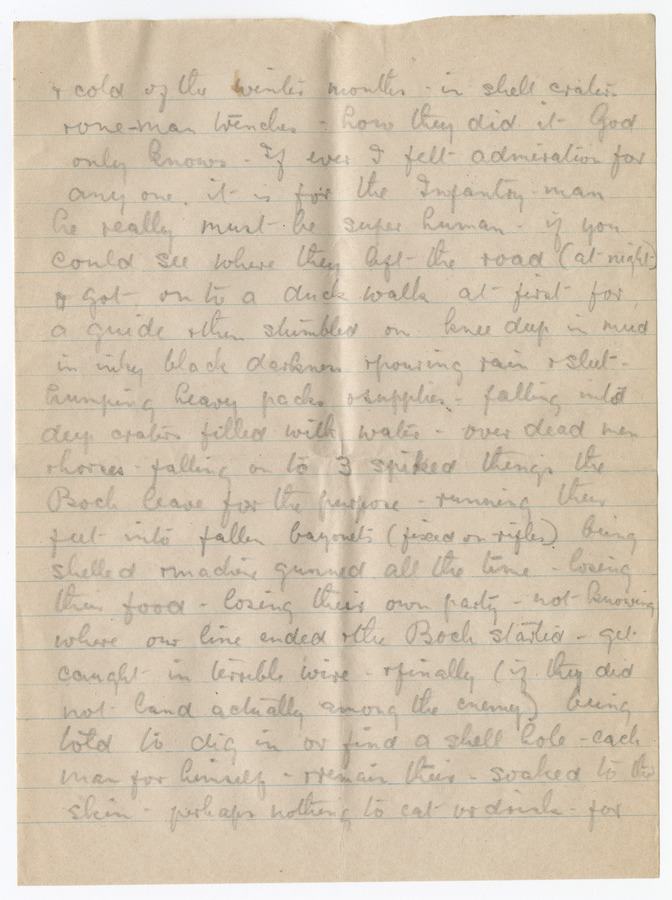 & cold of the winter months - in shell craters
& one-man trenches - how they did it God
only knows - If ever I felt admiration for
any one, it is for the Infantry-man
he really must be super human - if you
could see where they left the road (at night)
& got on to a duck walk at first for
a guide & then stumbled on knee deep in mud
in inky black darkness & pouring rain & sleet -
humping heavy packs & supplies - falling into
deep craters filled with water - over dead men
& horses - falling on to 3 spiked things the
Boch leave for the purpose - running their
feet into fallen bayonets (fixed on rifles) being
shelled & machine gunned all the time - losing
their food - losing their own party - not knowing
where our line ended & the Boch started - get
caught in terrible wire - & finally (if they did
not land actually among the enemy) being
told to dig in or find a shell hole - each
man for himself - & remain their - soaked to the
skin - perhaps nothing to eat or drink - for